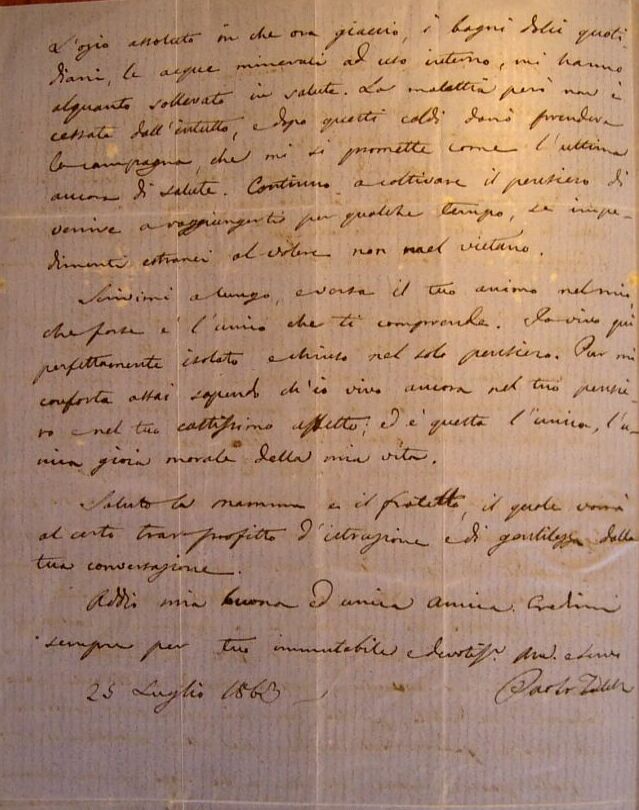 L'ozio assoluto in che ora giaccio, i bagni dolci quoti-
diani, le acque minerali ad uso interno, mi hanno
alquanto sollevato in salute. La malattia però non è
cessata dall'intutto, e dopo questi caldi dovrò prendere
la campagna, che mi si promette come l'ultima
ancora di salute. Continuo a coltivare il pensiero di
venire a raggiungerti per qualche tempo, se impe-
dimenti estranei al volere non mel vietano.
Scrivimi a lungo, e versa il tuo animo nel mio,
che forse è l'unico che ti comprende. Io vivo qui
perfettamente isolato e chiuso nel solo pensiero. Pur mi
conforta assai sapendo ch'io vivo ancora nel tuo pensie-
ro e nel tuo castissimo affetto; ed è questa l'unica, l'u-
nica gioia morale della mia vita.
Saluto la mamma e il fratello, il quale vorrà
al certo trar profitto d'istruzione e di gentilezza dalla
tua conversazione.
Addio mia buona ed unica amica. Credimi
sempre per tuo immutabile e devotiss.
25 Luglio 1863 Paolo